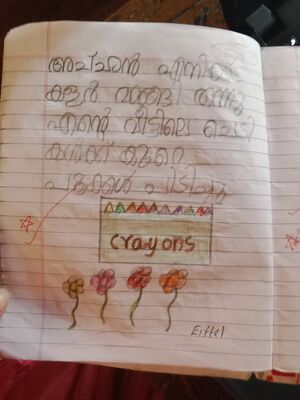 അച്ചാൻ എനിക്ക്
കളർ വാങ്ങി തന്നു
എൻ്റെ വീട്ടിലെ ചെടി
കൾക്ക് കുറെ
പൂക്കൾ പിടിച്ചു
crayons
Eiffel